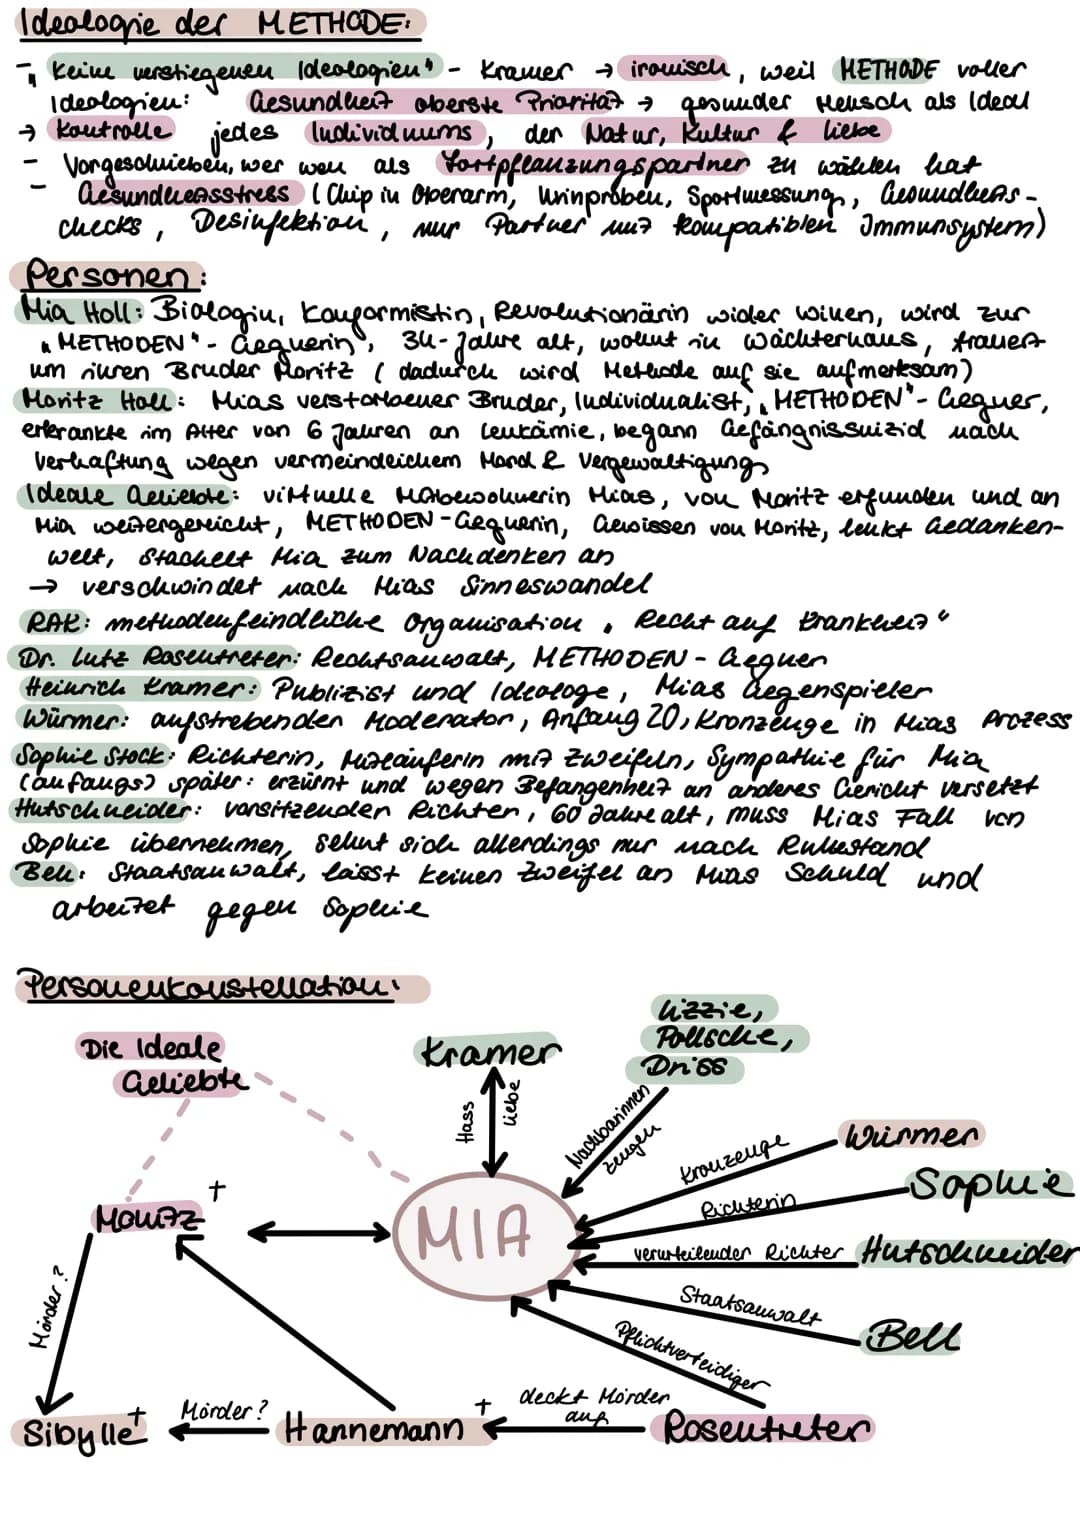 Ideologie der METHODE:
- „Keine verstiegenen Ideologien" - Kramer → ironisch, weil METHODE voller
Ideologien: Gesundheit oberste Priorität → gesunder Mensch als Ideal
→ Kontrolle jedes Individuums, der Natur, Kultur & Liebe
- Vorgeschrieben, wer wen als Fortpflanzungspartner zu wählen hat
- Gesundheitsstress (Chip in Oberarm, Urinproben, Sportmessung, Gesundheits-
checks, Desinfektion, nur Partner mit kompatiblen Immunsystem)
Personen:
Mia Holl: Biologin, Konformistin, Revolutionärin wider willen, wird zur
„METHODEN"-Gegnerin, 34-Jahre alt, wohnt in Wächterhaus, trauert
um ihren Bruder Moritz (dadurch wird Methode auf sie aufmerksam)
Moritz Holl: Mias verstorbener Bruder, Individualist, „METHODEN"-Gegner,
erkrankte im Alter von 6 Jahren an Leukämie, begann Gefängnissuizid nach
Verhaftung wegen vermeindlichem Mord & Vergewaltigung
Ideale Geliebte: virtuelle Mitbewohnerin Mias, von Moritz erfunden und an
Mia weitergereicht, METHODEN-Gegnerin, Gewissen von Moritz, lenkt Gedanken-
welt, stachelt Mia zum Nachdenken an
→ verschwindet nach Mias Sinneswandel
RAK: methodenfeindliche Organisation „Recht auf Krankheit"
Dr. Lutz Rosentreter: Rechtsanwalt, METHODEN-Gegner
Heinrich Kramer: Publizist und Ideologe, Mias Gegenspieler
Würmer: aufstrebenden Moderator, Anfang 20, Kronzeuge in Mias Prozess
Sophie Stock: Richterin, Mitläuferin mit Zweifeln, Sympathie für Mia
(anfangs) später: erzürnt und wegen Befangenheit an anderes Gericht versetzt
Hutschneider: vorsitzenden Richter, 60 Jahre alt, muss Mias Fall von
Sophie übernehmen, sehnt sich allerdings nur nach Ruhestand
Bell: Staatsanwalt, lässt keinen Zweifel an Mias Schuld und
arbeitet gegen Sophie
Personenkonstellation:
Die Ideale
Geliebte
Kramer
Lizzie,
Pollsche,
Driss
Hass
Liebe
Nachbarinnen
Zeugen
Kronzeuge
Würmer
Richterin
Sophie
Moritz +
MIA
verurteilender Richter
Hutschneider
Mörder?
Staatsanwalt
Bell
Pflichtverteidiger
Sibylle +
Mörder?
Hannemann +
deckt Mörder
auf
Rosentreter